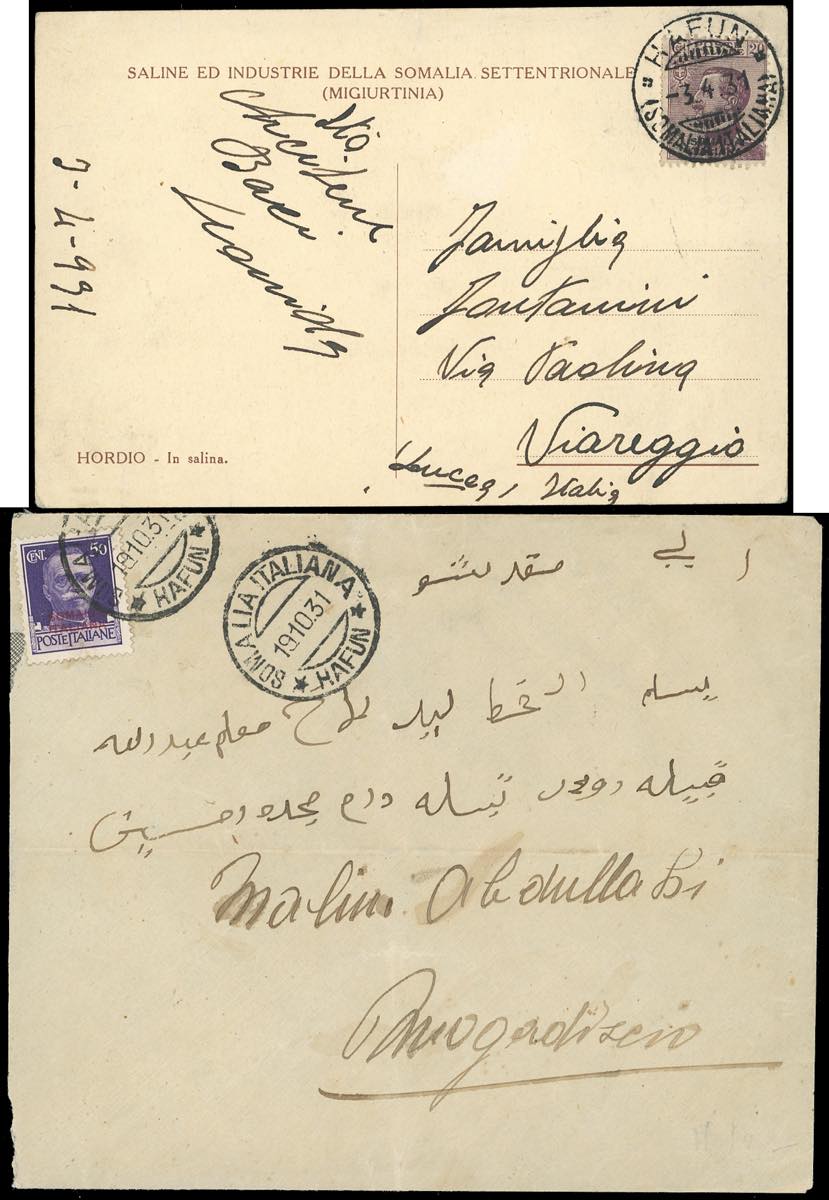 SALINE ED INDUSTRIE DELLA SOMALIA SETTENTRIONALE
(MIGIURTINIA)
20
HAFUN
-3.4.31
(SOMALIA ITALIANA)
Sto
Baci
3-4-931
Famiglia
Fantanini
Via Paolina
Viareggio
Lucca, Italia
HORDIO - In salina.
CENT. 50
POSTE ITALIANE
19.10.31
HAFUN
SOMALIA ITALIANA
19.10.31
HAFUN
الي مقدشو
يسلم الخط ليد معلم عبد الله
قبيله
Malim Abdullahi
Mogadiscio